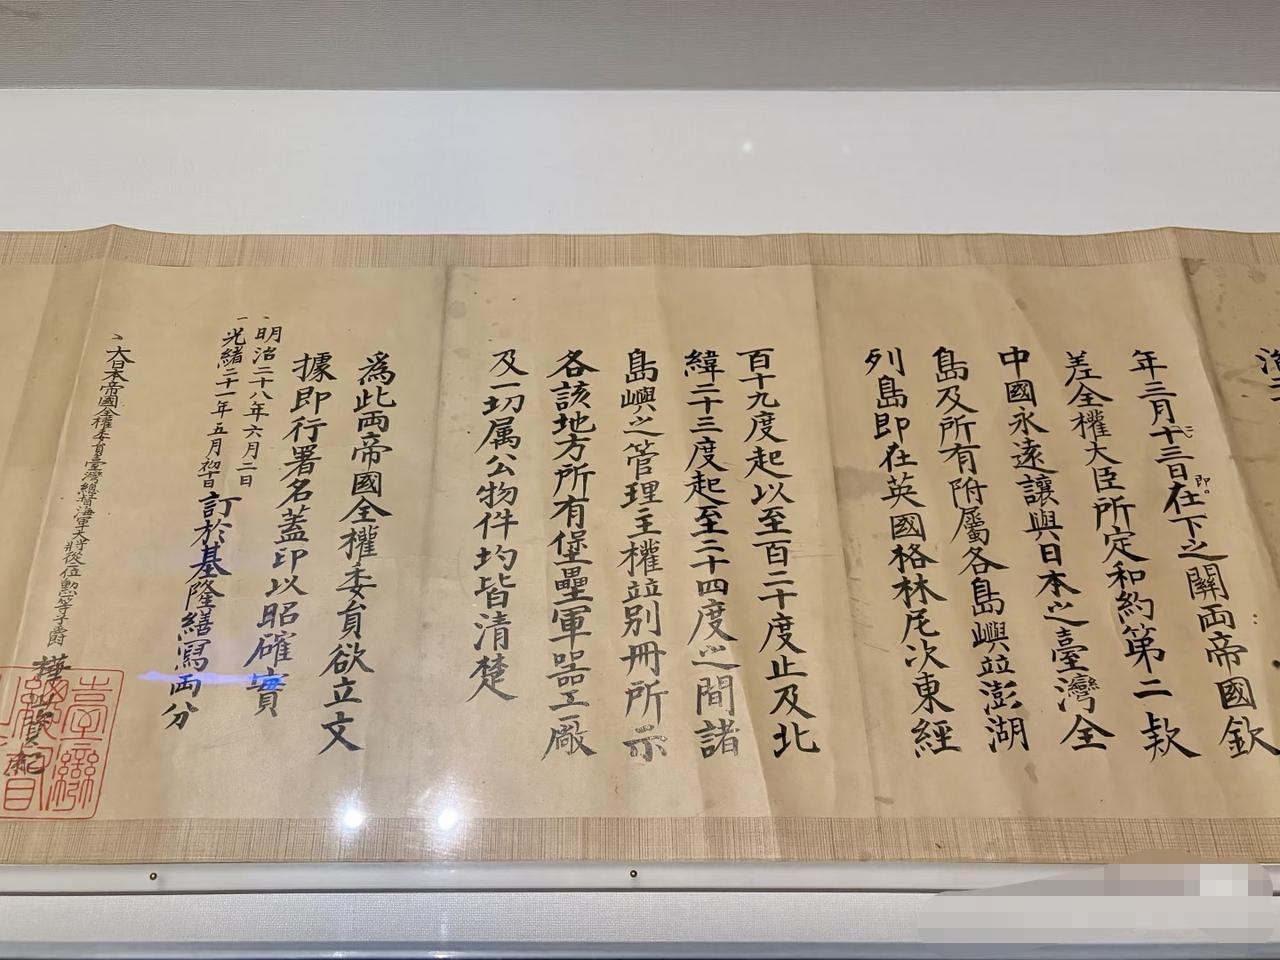 年三月廿三日在下之關両帝國欽
即
差全權大臣所定和約第二款
中國永遠讓與日本之臺灣全
島及所有附屬各島嶼竝澎湖
列島即在英國格林尼次東經
百十九度起以至百二十度止及北
緯二十三度起至二十四度之間諸
島嶼之管理主權竝別冊所示
各該地方所有堡壘軍器工廠
及一切属公物件均皆清楚
為此両帝國全權委員欲立文
據即行署名蓋印以昭確實
明治二十八年六月二日
光緒二十一年五月初十日
訂於基隆繕寫両分
大日本帝國全權委員臺灣總督海軍大將從二位勲一等子爵
樺山資紀